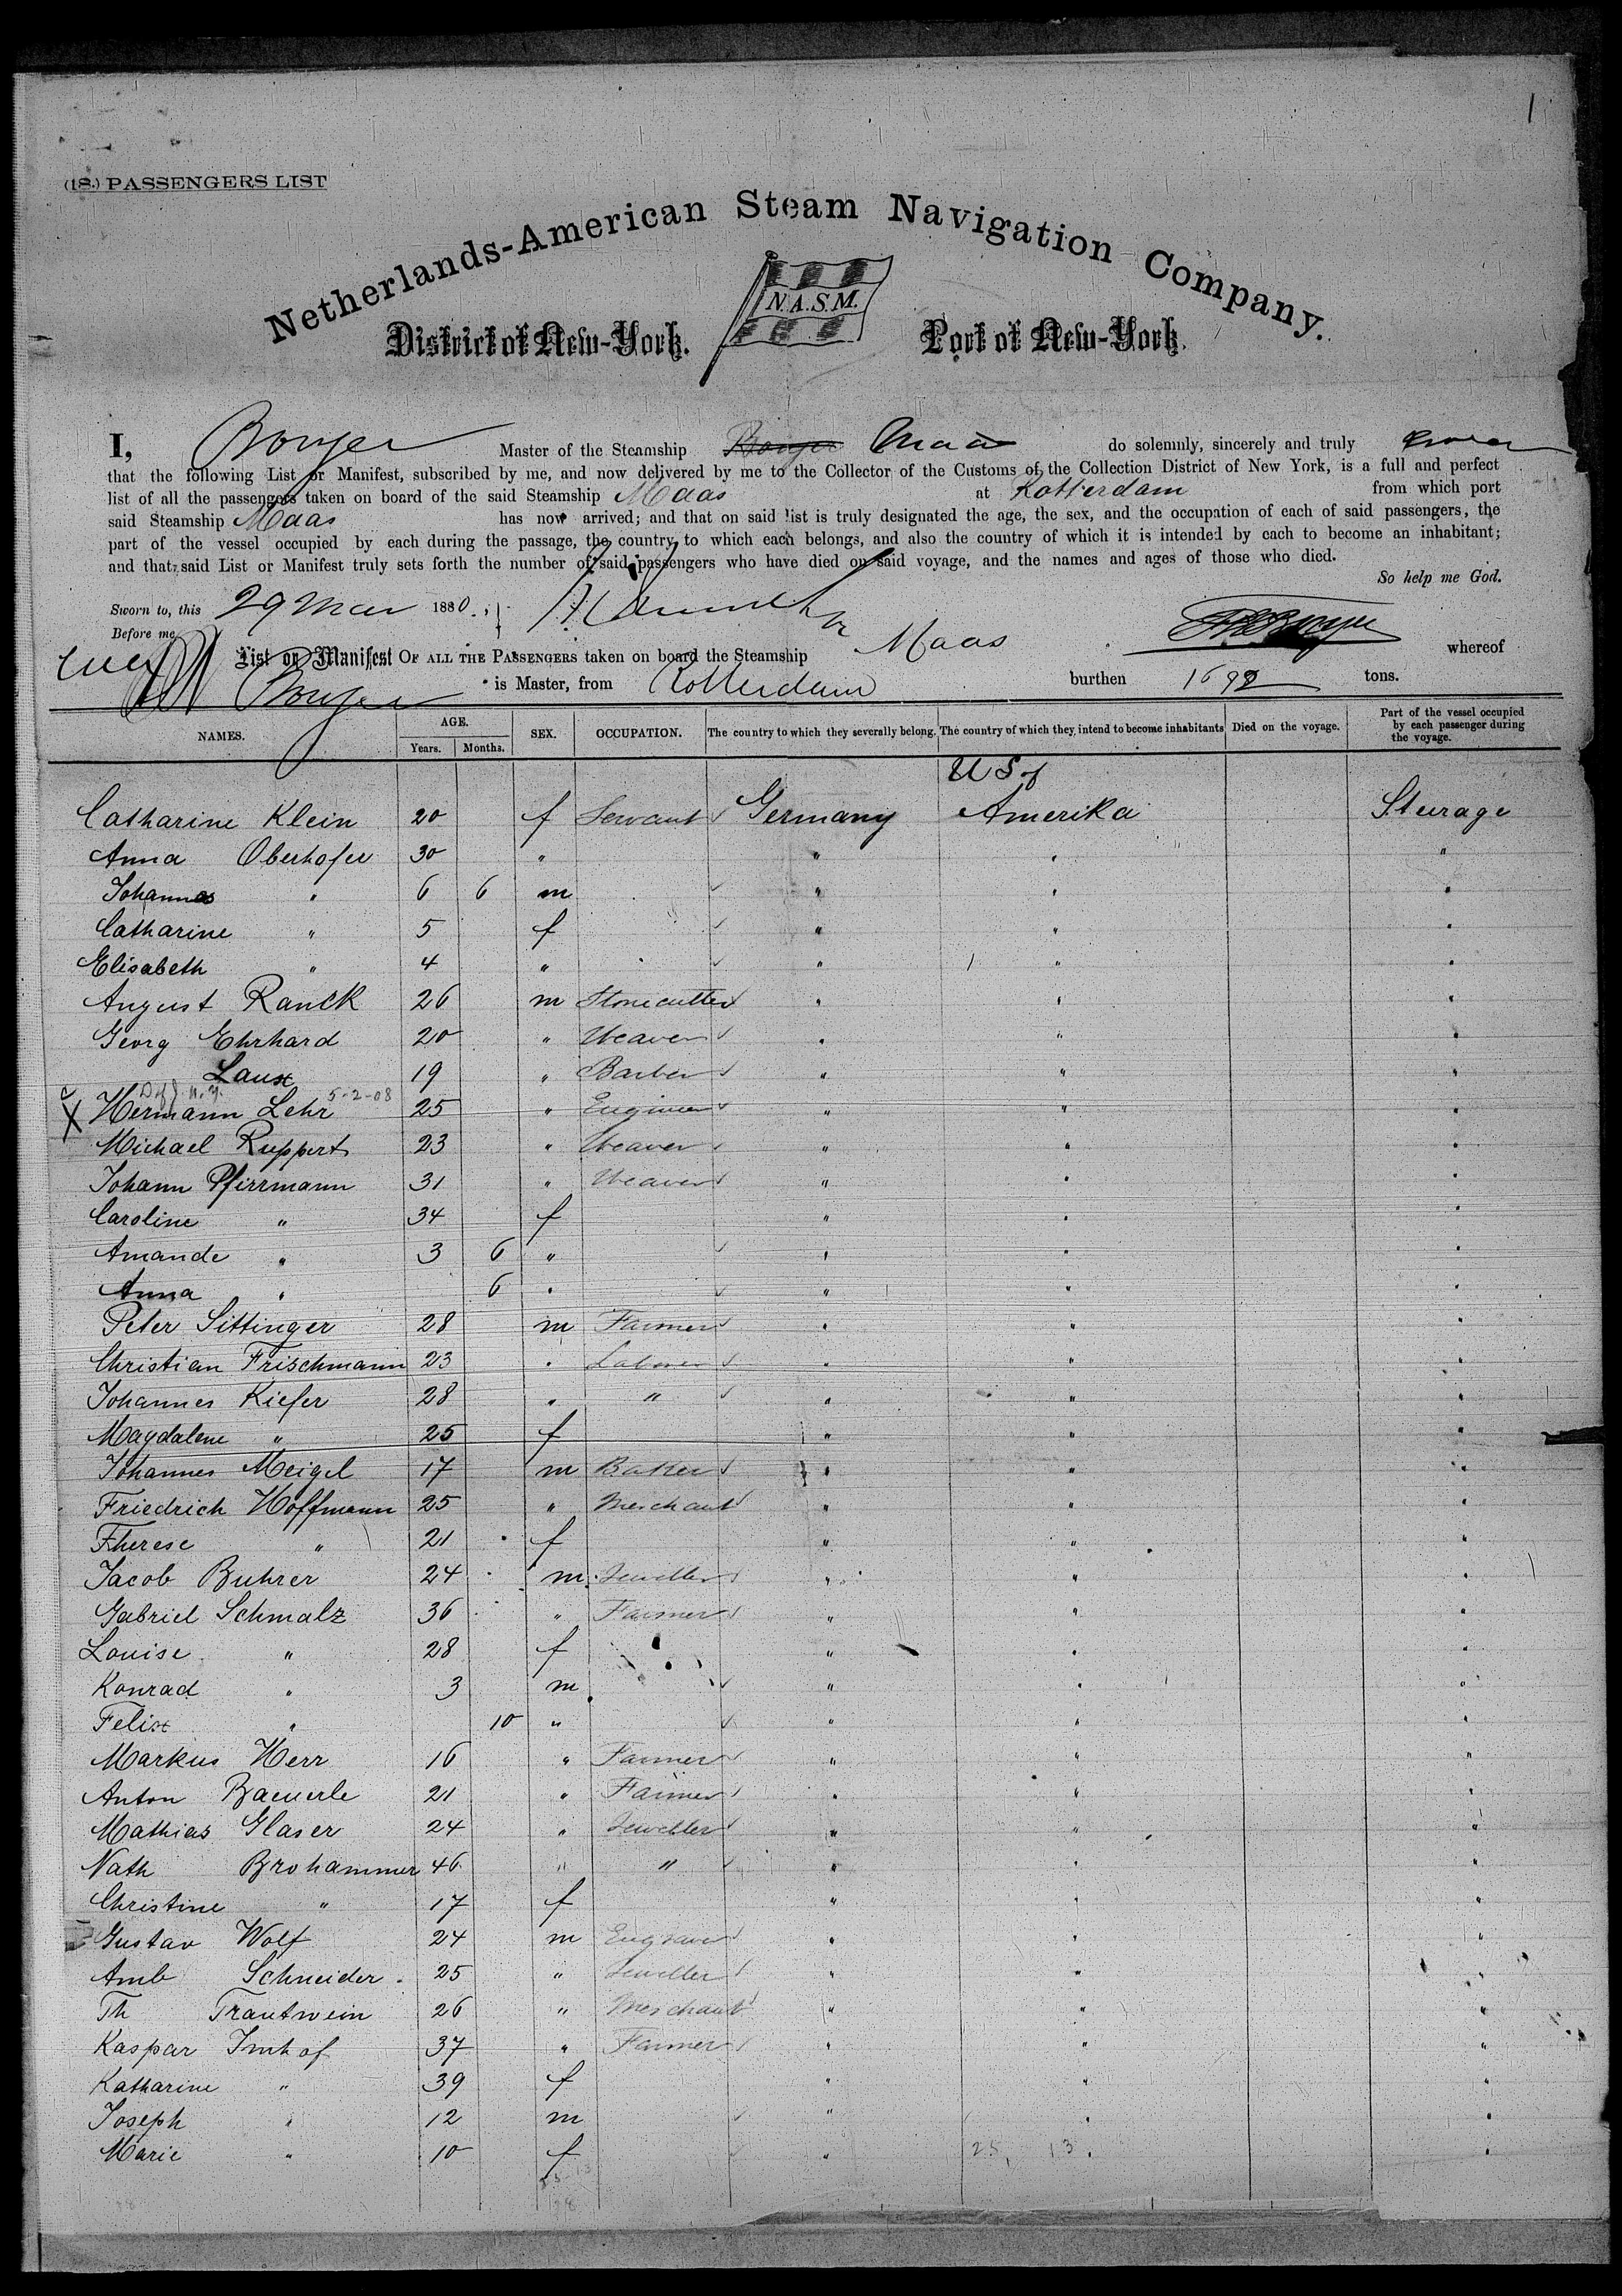 1
(18.) PASSENGERS LIST
Netherlands-American Steam Navigation Company.
N.A.S.M.
District of New-York. Port of New-York.
I, Bonjer Master of the Steamship Bonjer Maas do solemnly, sincerely and truly
that the following List or Manifest, subscribed by me, and now delivered by me to the Collector of the Customs of the Collection District of New York, is a full and perfect
list of all the passengers taken on board of the said Steamship Maas at Rotterdam from which port
said Steamship Maas has now arrived; and that on said list is truly designated the age, the sex, and the occupation of each of said passengers, the
part of the vessel occupied by each during the passage, the country to which each belongs, and also the country of which it is intended by each to become an inhabitant;
and that said List or Manifest truly sets forth the number of said passengers who have died on said voyage, and the names and ages of those who died.
So help me God.
Sworn to, this 29 Mar 1880.
Before me
List or Manifest OF ALL THE PASSENGERS taken on board the Steamship Maas whereof
Bonjer is Master, from Rotterdam burthen 1692 tons.
NAMES. AGE. Years. Months. SEX. OCCUPATION. The country to which they severally belong. The country of which they intend to become inhabitants Died on the voyage. Part of the vessel occupied by each passenger during the voyage.
U S of
Catharine Klein 20 f Servant Germany Amerika Steurage
Anna Oberhofer 30 " " " "
Johannes " 6 6 m " " "
Catharine " 5 f " " "
Elisabeth " 4 " " " "
August Ranck 26 m Stonecutter " " "
Georg Ehrhard 20 " Weaver " " "
Laux 19 " Barber " " "
5-2-08
X Hermann Lehr 25 " Engineer " " "
Michael Ruppert 23 " Weaver " " "
Johann Pfirrmann 31 " Weaver " " "
Caroline " 34 f " " "
Amande " 3 6 " " " "
Anna " 6 " " " "
Peter Sittinger 28 m Farmer " " "
Christian Frischmann 23 " Laborer " " "
Johannes Kiefer 28 " " " " "
Magdalene " 25 f " " "
Johannes Meigel 17 m Baker " " "
Friedrich Hoffmann 25 " Merchant " " "
Therese " 21 f " " "
Jacob Buhrer 24 m Jeweller " " "
Gabriel Schmalz 36 " Farmer " " "
Louise " 28 f " " "
Konrad " 3 m " " "
Felix " 10 " " " "
Markus Herr 16 " Farmer " " "
Anton Baeuerle 21 " Farmer " " "
Mathias Glaser 24 " Jeweller " " "
Nath Brohammer 46 " " " " "
Christine " 17 f " " "
Gustav Wolf 24 m Engraver " " "
Amb Schneider 25 " Jeweller " " "
Th Trautwein 26 " Merchant " " "
Kaspar Imhof 37 " Farmer " " "
Katharine " 39 f " " "
Joseph " 12 m " " "
Marie " 10 f " " "
25 13